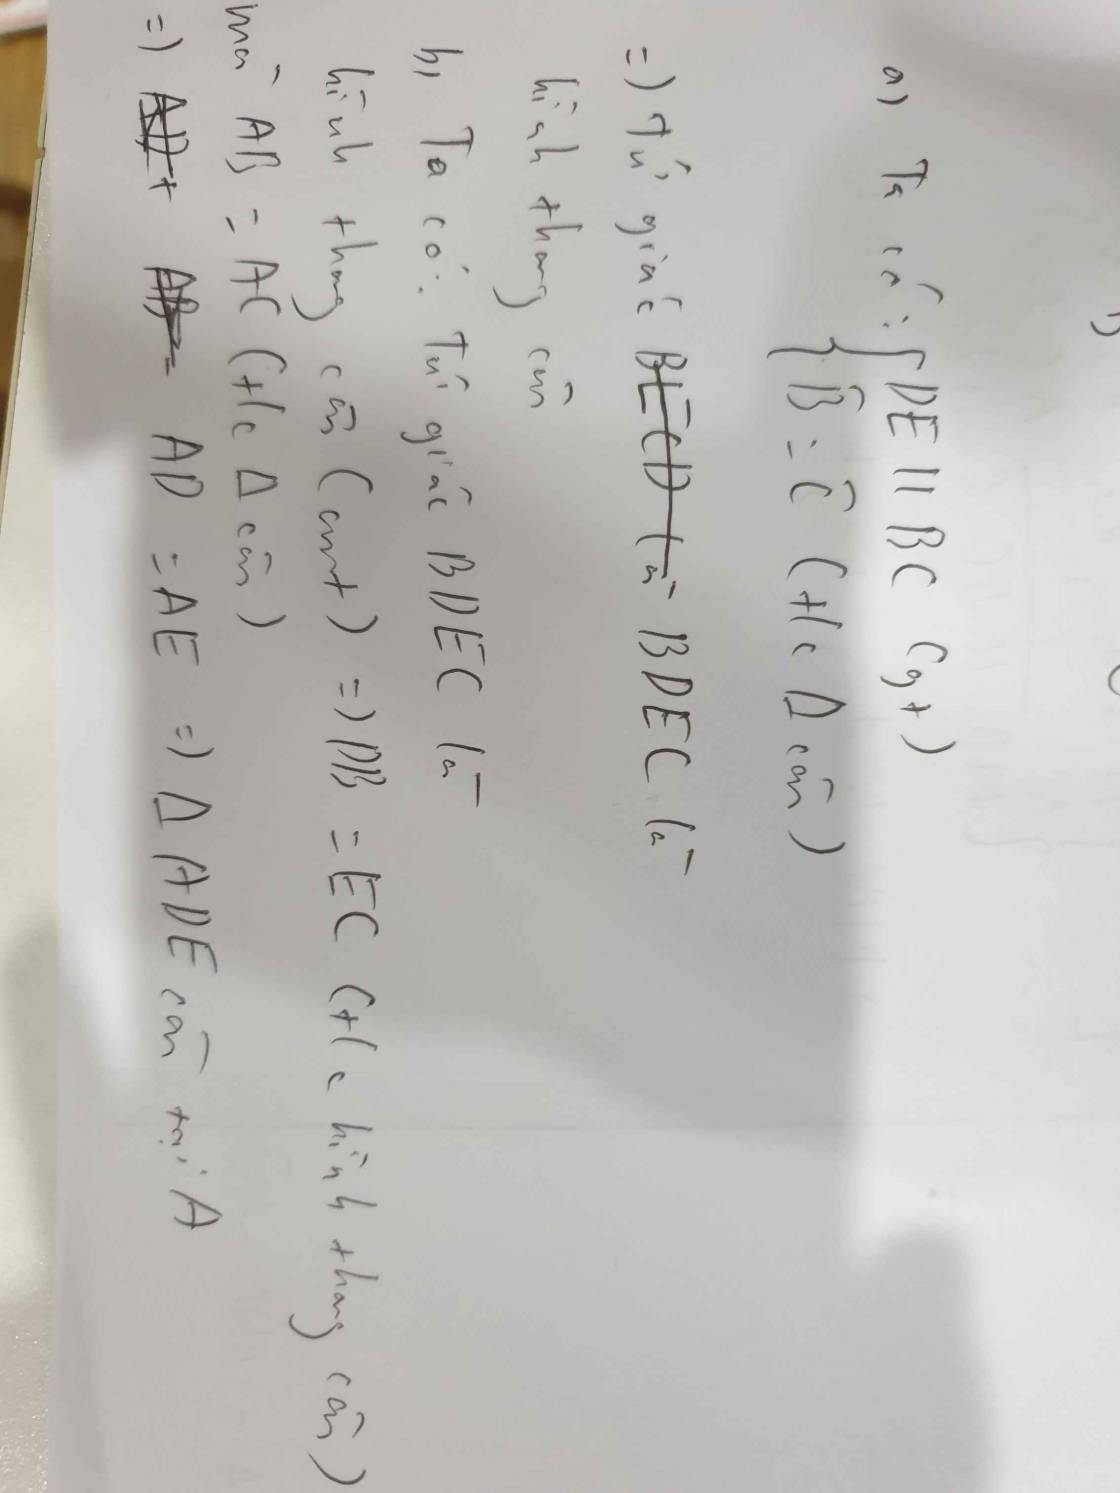 a) Ta có: { DE // BC (gt)
B̂ = Ĉ (t/c Δ cân)
=) Tứ giác BECD là BDEC là
hình thang cân
b) Ta có: Tứ giác BDEC là
hình thang cân (cmt) =) DB = EC (t/c hình thang cân)
mà AB = AC (t/c Δ cân)
=) AD + AB = AD = AE =) Δ ADE cân tại A